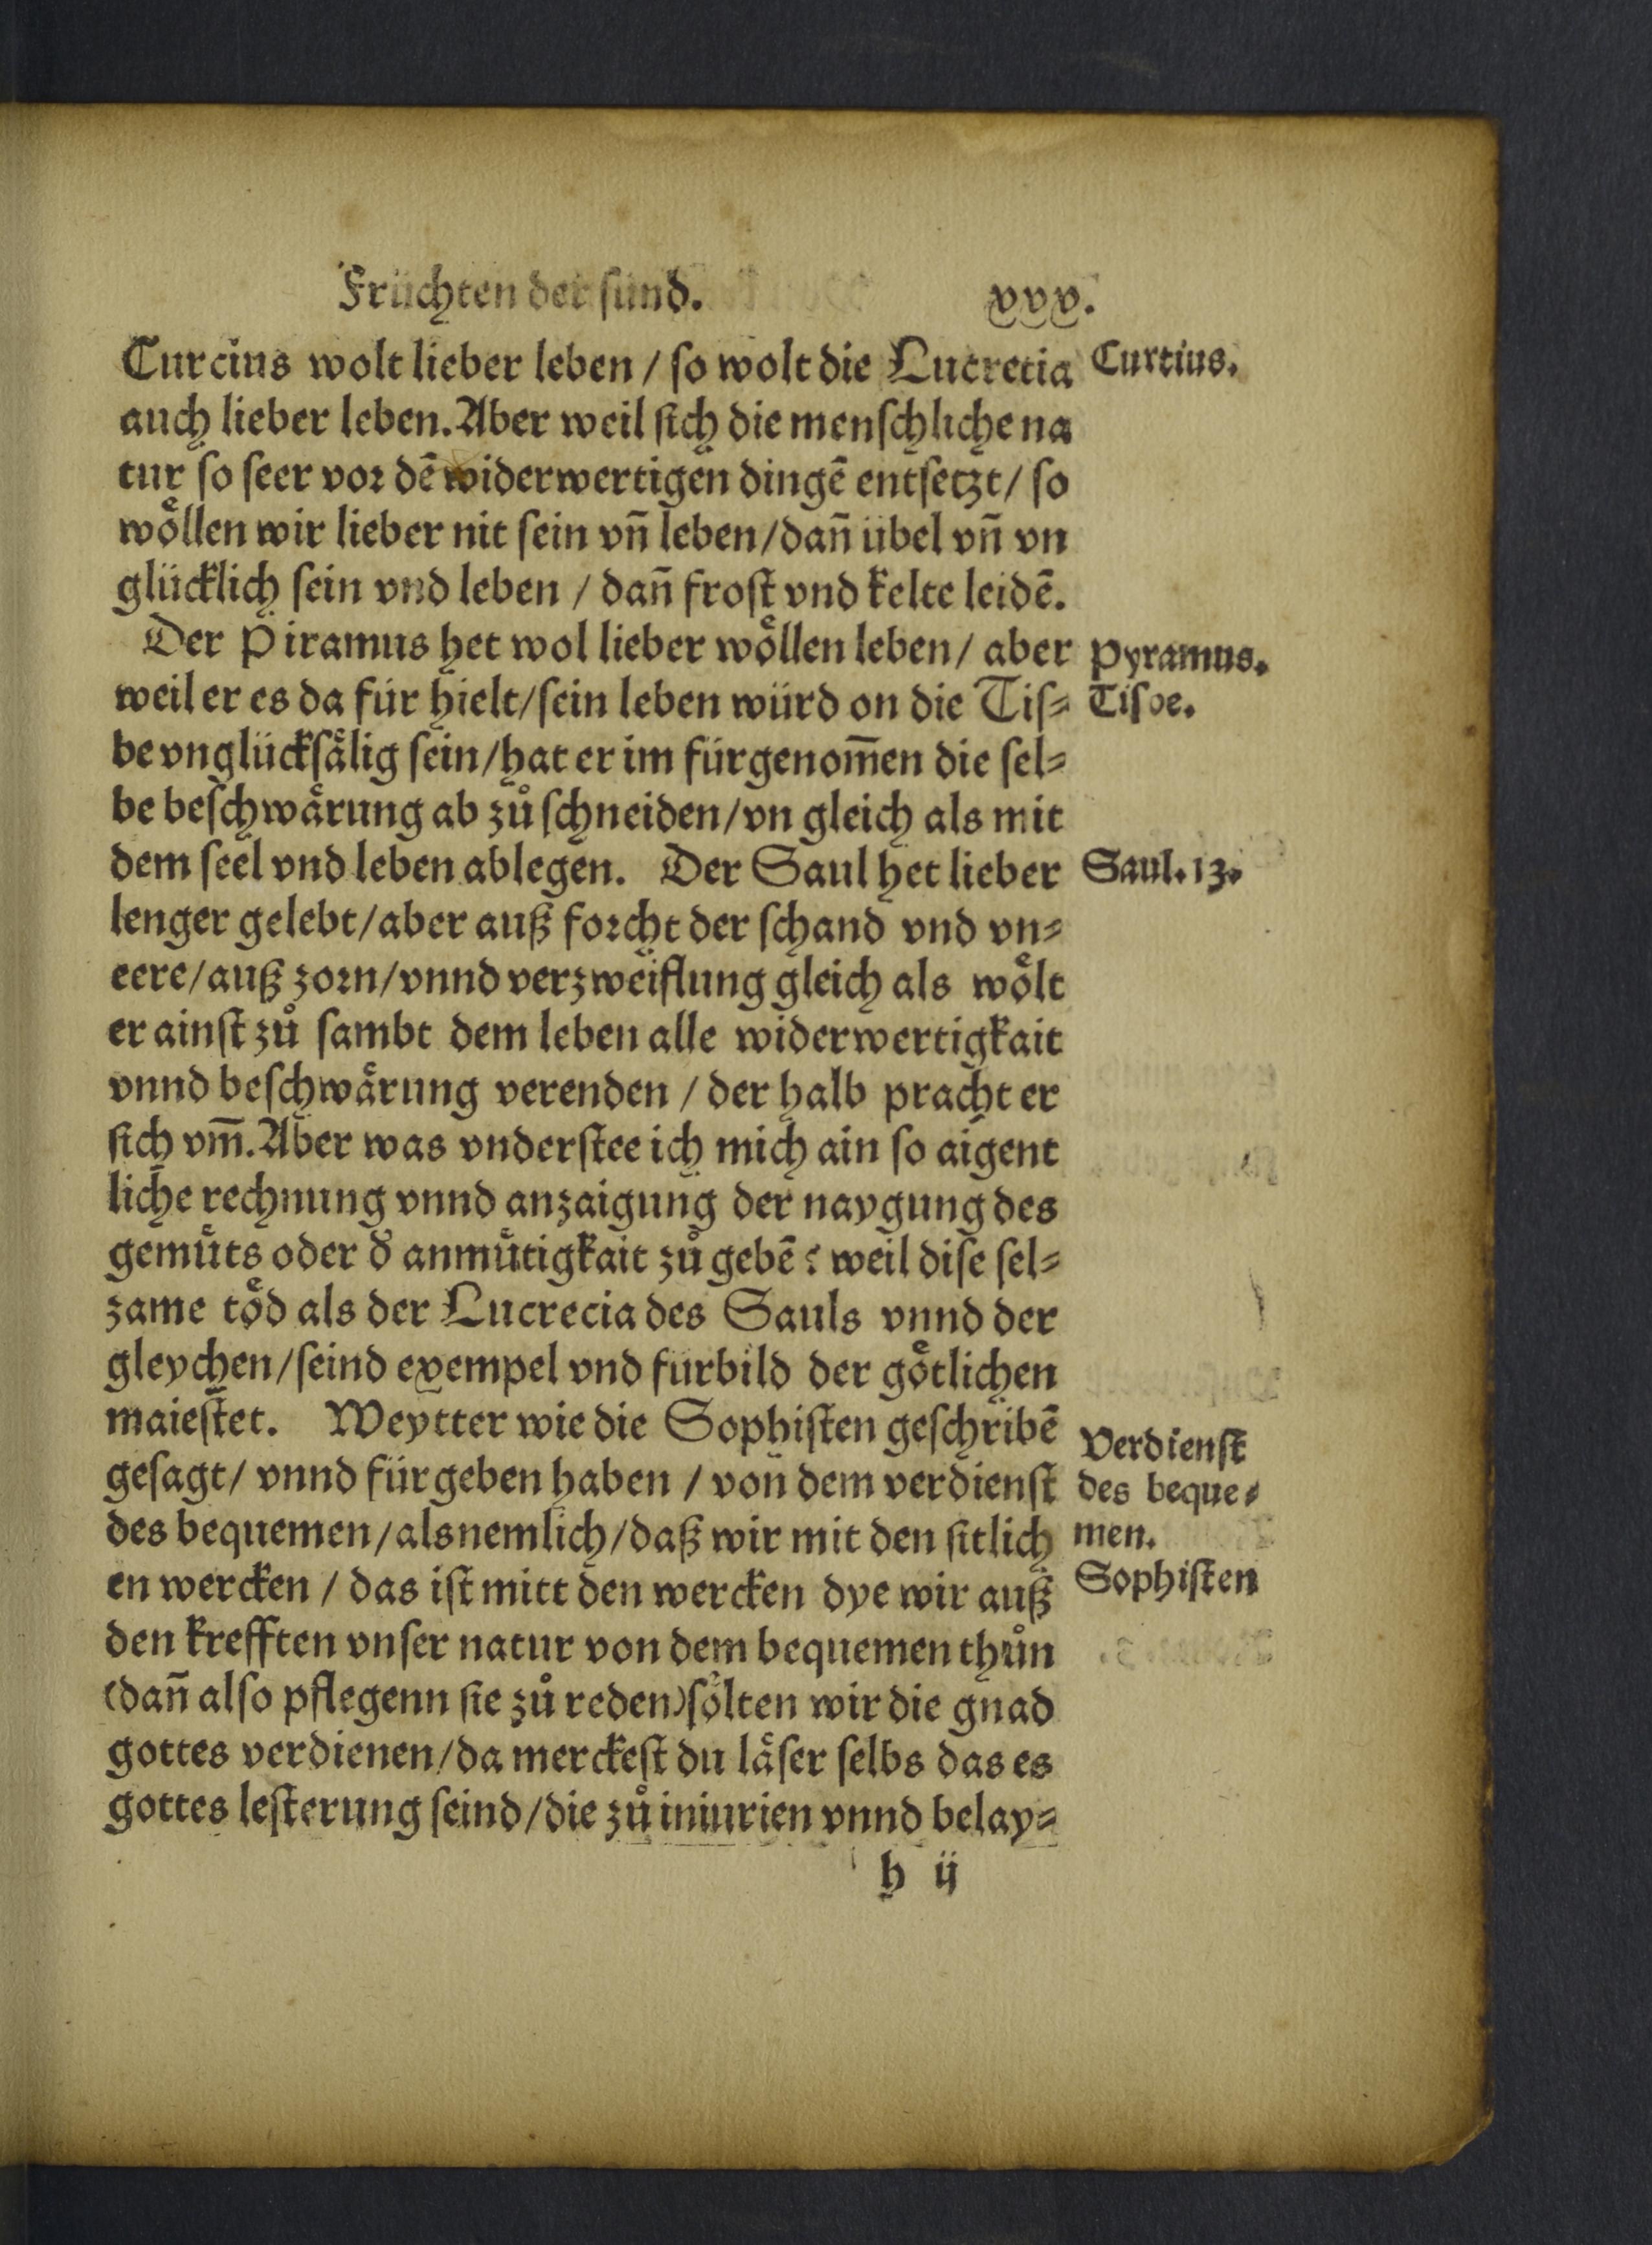 Früchten der sünd. xxx.
Curcius wolt lieber leben / so wolt die Lucretia
auch lieber leben. Aber weil sich die menschliche na
tur so seer vor dē widerwertigen dingē entsetzt / so
woͤllen wir lieber nit sein vñ leben / dañ übel vñ vn
glücklich sein vnd leben / dañ frost vnd kelte leidē.
Der Piramus het wol lieber woͤllen leben / aber
weil er es da für hielt / sein leben würd on die Tis⸗
be vnglücksaͤlig sein / hat er im fürgenom̄en die sel⸗
be beschwaͤrung ab zuͦ schneiden / vn gleich als mit
dem seel vnd leben ablegen. Der Saul het lieber
lenger gelebt / aber auß forcht der schand vnd vn⸗
eere / auß zorn / vnnd verzweiflung gleich als woͤlt
er ainst zuͦ sambt dem leben alle widerwertigkait
vnnd beschwaͤrung verenden / der halb pracht er
sich vm̄. Aber was vnderstee ich mich ain so aigent
liche rechnung vnnd anzaigung der naygung des
gemuͤts oder d' anmuͤtigkait zuͦ gebē? weil dise sel⸗
zame toͤd als der Lucrecia des Sauls vnnd der
gleychen / seind exempel vnd fürbild der goͤtlichen
maiestet. Weytter wie die Sophisten geschribē
gesagt / vnnd für geben haben / von dem verdienst
des bequemen / als nemlich / daß wir mit den sitlich
en wercken / das ist mitt den wercken dye wir auß
den krefften vnser natur von dem bequemen thuͦn
(dañ also pflegenn sie zuͦ reden) soͤlten wir die gnad
gottes verdienen / da merckest du laͤser selbs das es
gottes lesterung seind / die zuͦ iniurien vnnd belay⸗
h ij
Curtius.
Pyramus.
Tisbe.
Saul. 13.
Verdienst
des beque⸗
men.
Sophisten